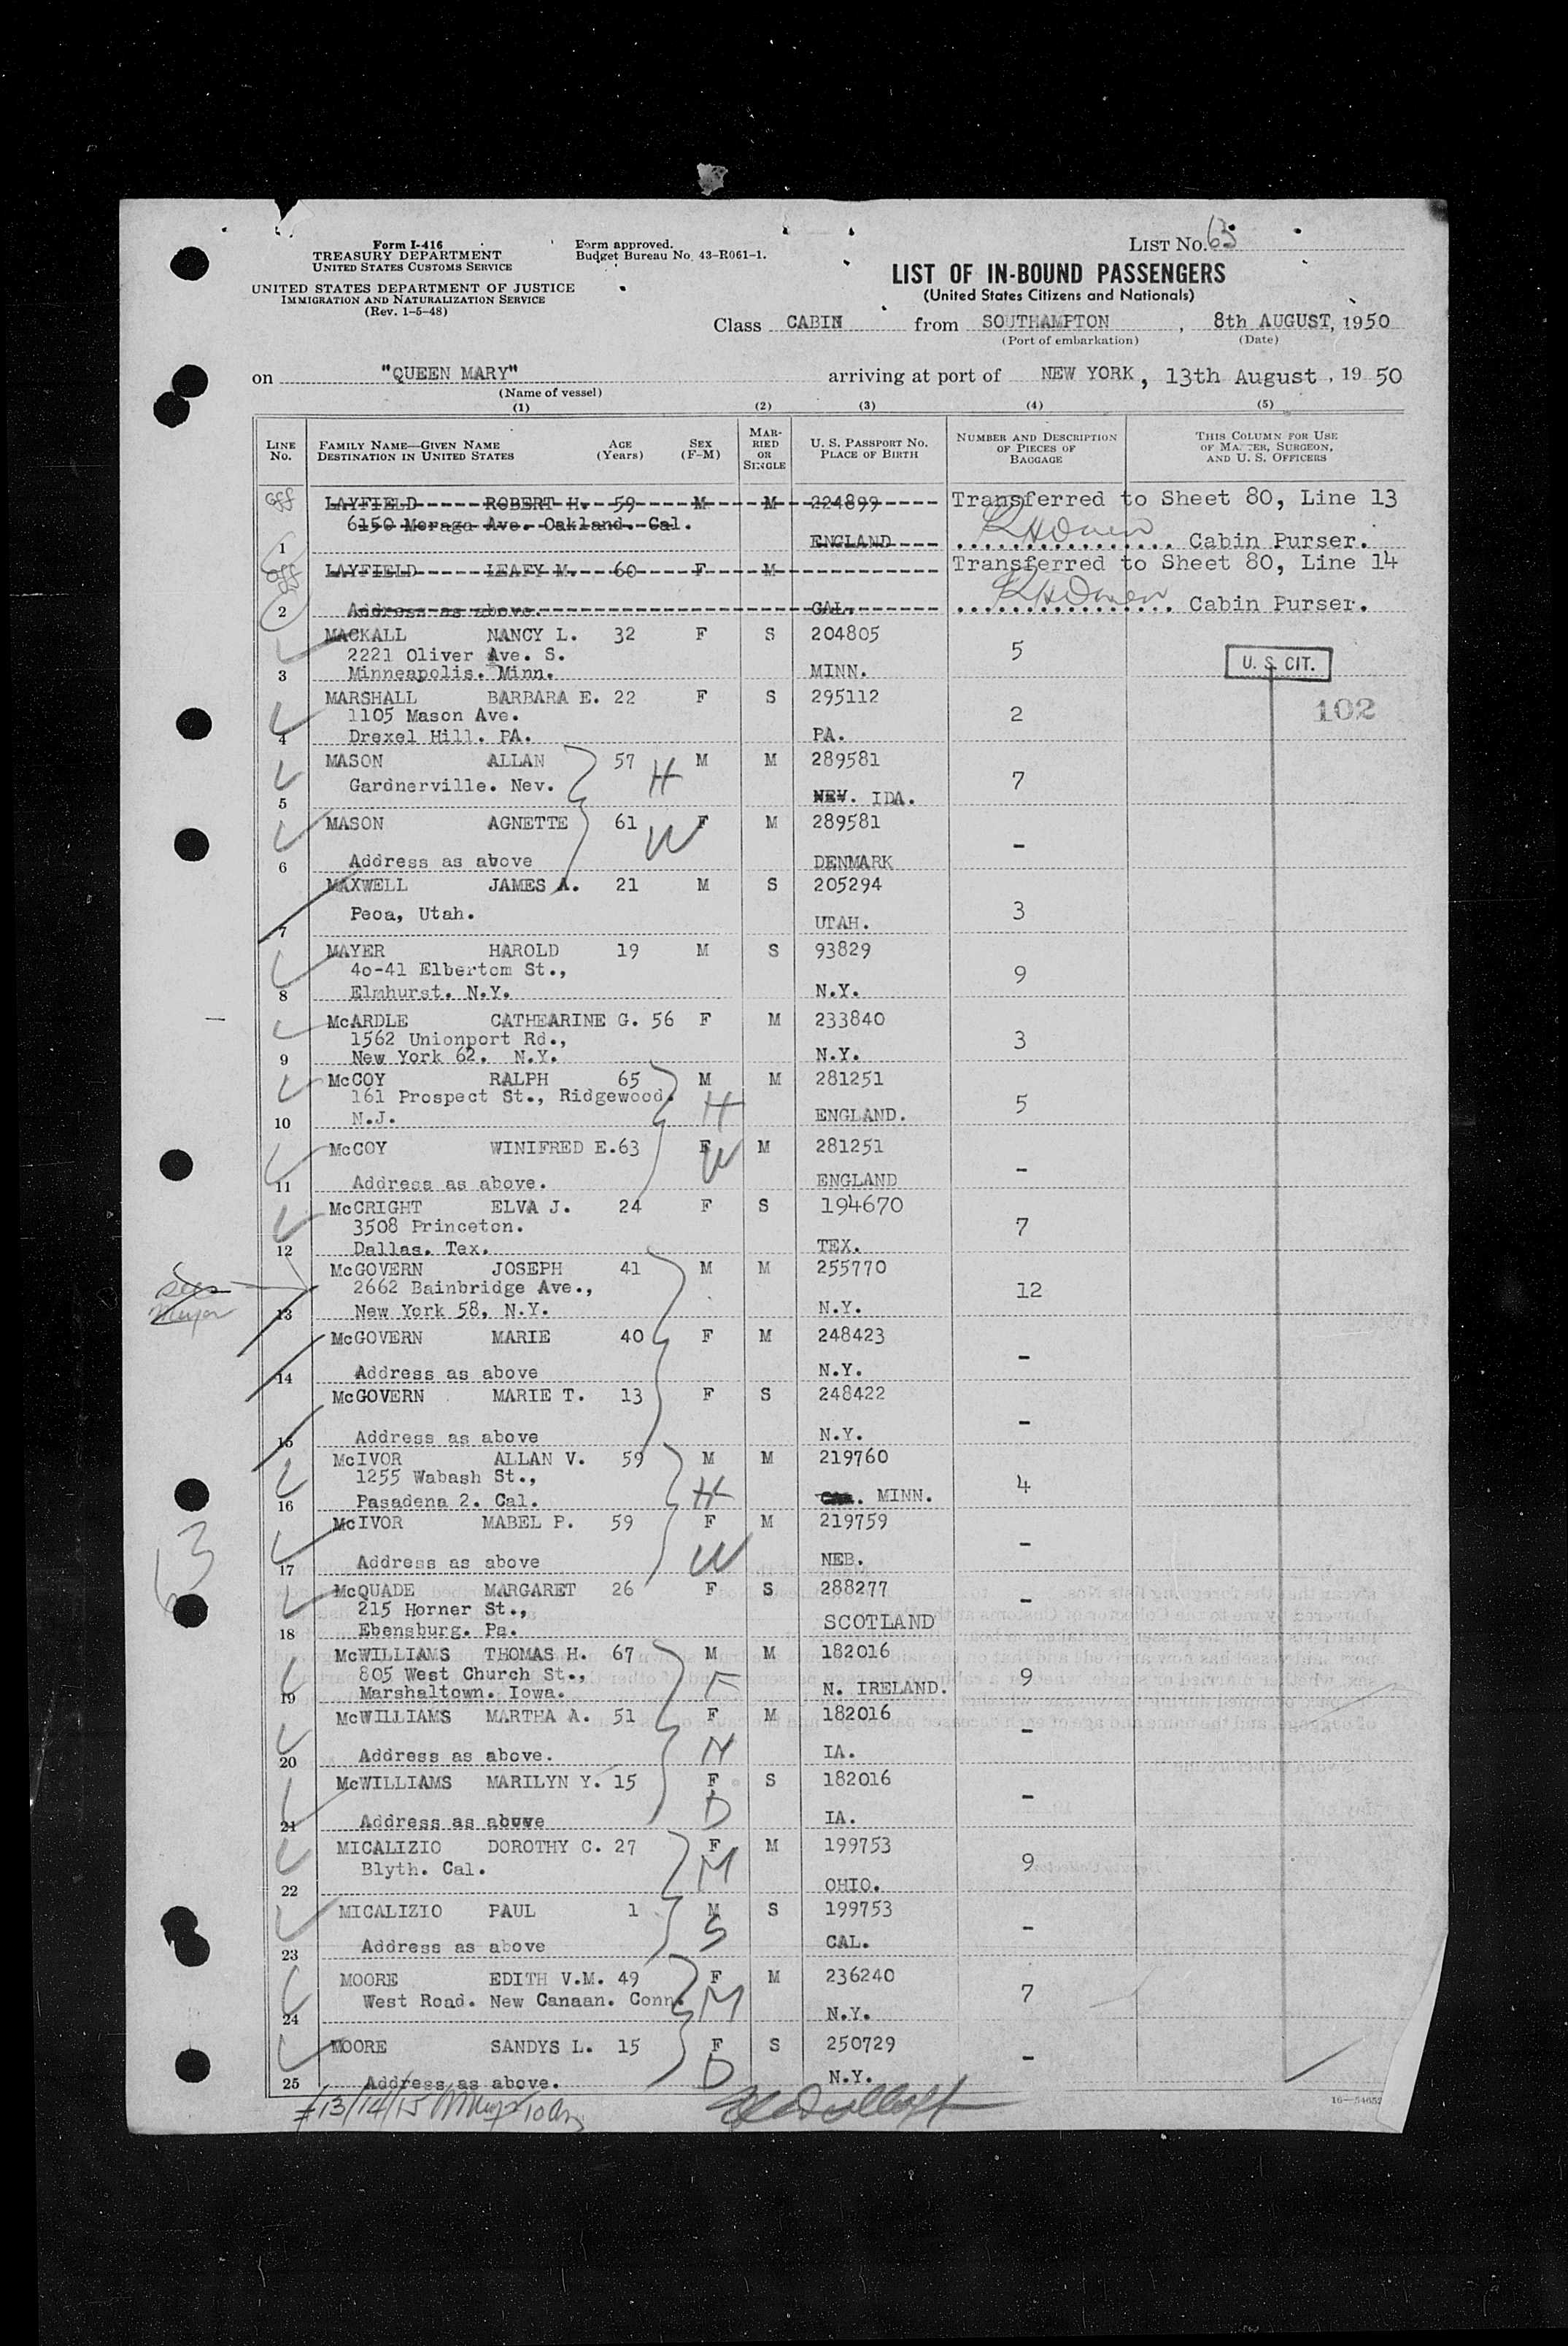 Form I-416
TREASURY DEPARTMENT
UNITED STATES CUSTOMS SERVICE
UNITED STATES DEPARTMENT OF JUSTICE
IMMIGRATION AND NATURALIZATION SERVICE
(Rev. 1-5-48)
Form approved.
Budget Bureau No. 43-R061-1.
LIST NO. 63
LIST OF IN-BOUND PASSENGERS
(United States Citizens and Nationals)
Class CABIN from SOUTHAMPTON, 8th AUGUST, 1950
(Port of embarkation) (Date)
on "QUEEN MARY" arriving at port of NEW YORK, 13th August, 19 50
(Name of vessel)
(1) (2) (3) (4) (5)
LINE No. FAMILY NAME—GIVEN NAME DESTINATION IN UNITED STATES AGE (Years) SEX (F-M) MARRIED OR SINGLE U. S. PASSPORT NO. PLACE OF BIRTH NUMBER AND DESCRIPTION OF PIECES OF BAGGAGE THIS COLUMN FOR USE OF MASTER, SURGEON, AND U. S. OFFICERS
off LAYFIELD ROBERT H. 59 M M 224899 Transferred to Sheet 80, Line 13
6150 Morago Ave. Oakland. Cal.
1 ENGLAND Cabin Purser.
off LAYFIELD LEAFY M. 60 F M Transferred to Sheet 80, Line 14
2 Address as above. CAL. Cabin Purser.
MACKALL NANCY L. 32 F S 204805
2221 Oliver Ave. S. 5
3 Minneapolis. Minn. MINN. U. S. CIT.
MARSHALL BARBARA E. 22 F S 295112
1105 Mason Ave. 2 102
4 Drexel Hill. PA. PA.
MASON ALLAN 57 H M M 289581
Gardnerville. Nev. 7
5 NEV. IDA.
MASON AGNETTE 61 W F M 289581
6 Address as above DENMARK -
MAXWELL JAMES A. 21 M S 205294
Peoa, Utah. 3
7 UTAH.
MAYER HAROLD 19 M S 93829
40-41 Elbertom St., 9
8 Elmhurst. N.Y. N.Y.
McARDLE CATHEARINE G. 56 F M 233840
1562 Unionport Rd., 3
9 New York 62. N.Y. N.Y.
McCOY RALPH 65 M M 281251
161 Prospect St., Ridgewood. H 5
10 N.J. ENGLAND.
McCOY WINIFRED E. 63 F W M 281251
11 Address as above. ENGLAND -
McCRIGHT ELVA J. 24 F S 194670
3508 Princeton. 7
12 Dallas. Tex. TEX.
McGOVERN JOSEPH 41 M M 255770
2662 Bainbridge Ave., 12
13 New York 58, N.Y. N.Y.
McGOVERN MARIE 40 F M 248423
14 Address as above N.Y. -
McGOVERN MARIE T. 13 F S 248422
15 Address as above N.Y. -
McIVOR ALLAN V. 59 M M 219760
1255 Wabash St., H 4
16 Pasadena 2. Cal. MINN.
McIVOR MABEL P. 59 F M 219759
17 Address as above W NEB. -
63
McQUADE MARGARET 26 F S 288277
215 Horner St., -
18 Ebensburg. Pa. SCOTLAND
McWILLIAMS THOMAS H. 67 M M 182016
805 West Church St., F 9
19 Marshaltown. Iowa. N. IRELAND.
McWILLIAMS MARTHA A. 51 F M 182016
20 Address as above. M IA. -
McWILLIAMS MARILYN Y. 15 F S 182016
21 Address as above D IA. -
MICALIZIO DOROTHY C. 27 F M 199753
Blyth. Cal. M 9
22 OHIO.
MICALIZIO PAUL 1 M S 199753
23 Address as above S CAL. -
MOORE EDITH V.M. 49 F M 236240
West Road. New Canaan. Conn. M 7
24 N.Y.
MOORE SANDYS L. 15 F S 250729
25 Address as above. D N.Y. -
#13/14/15